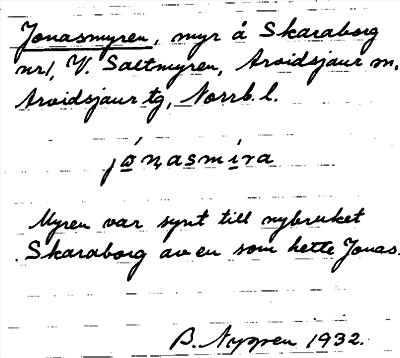 Jonasmyren, myr å Skaraborg
nr 1, V. Saltmyren, Arvidsjaur sn.
Arvidsjaur tg, Norrb. l.
jónasmíra
Myren var synt till nybruket
Skaraborg av en som hette Jonas.
B. Nygren 1932.